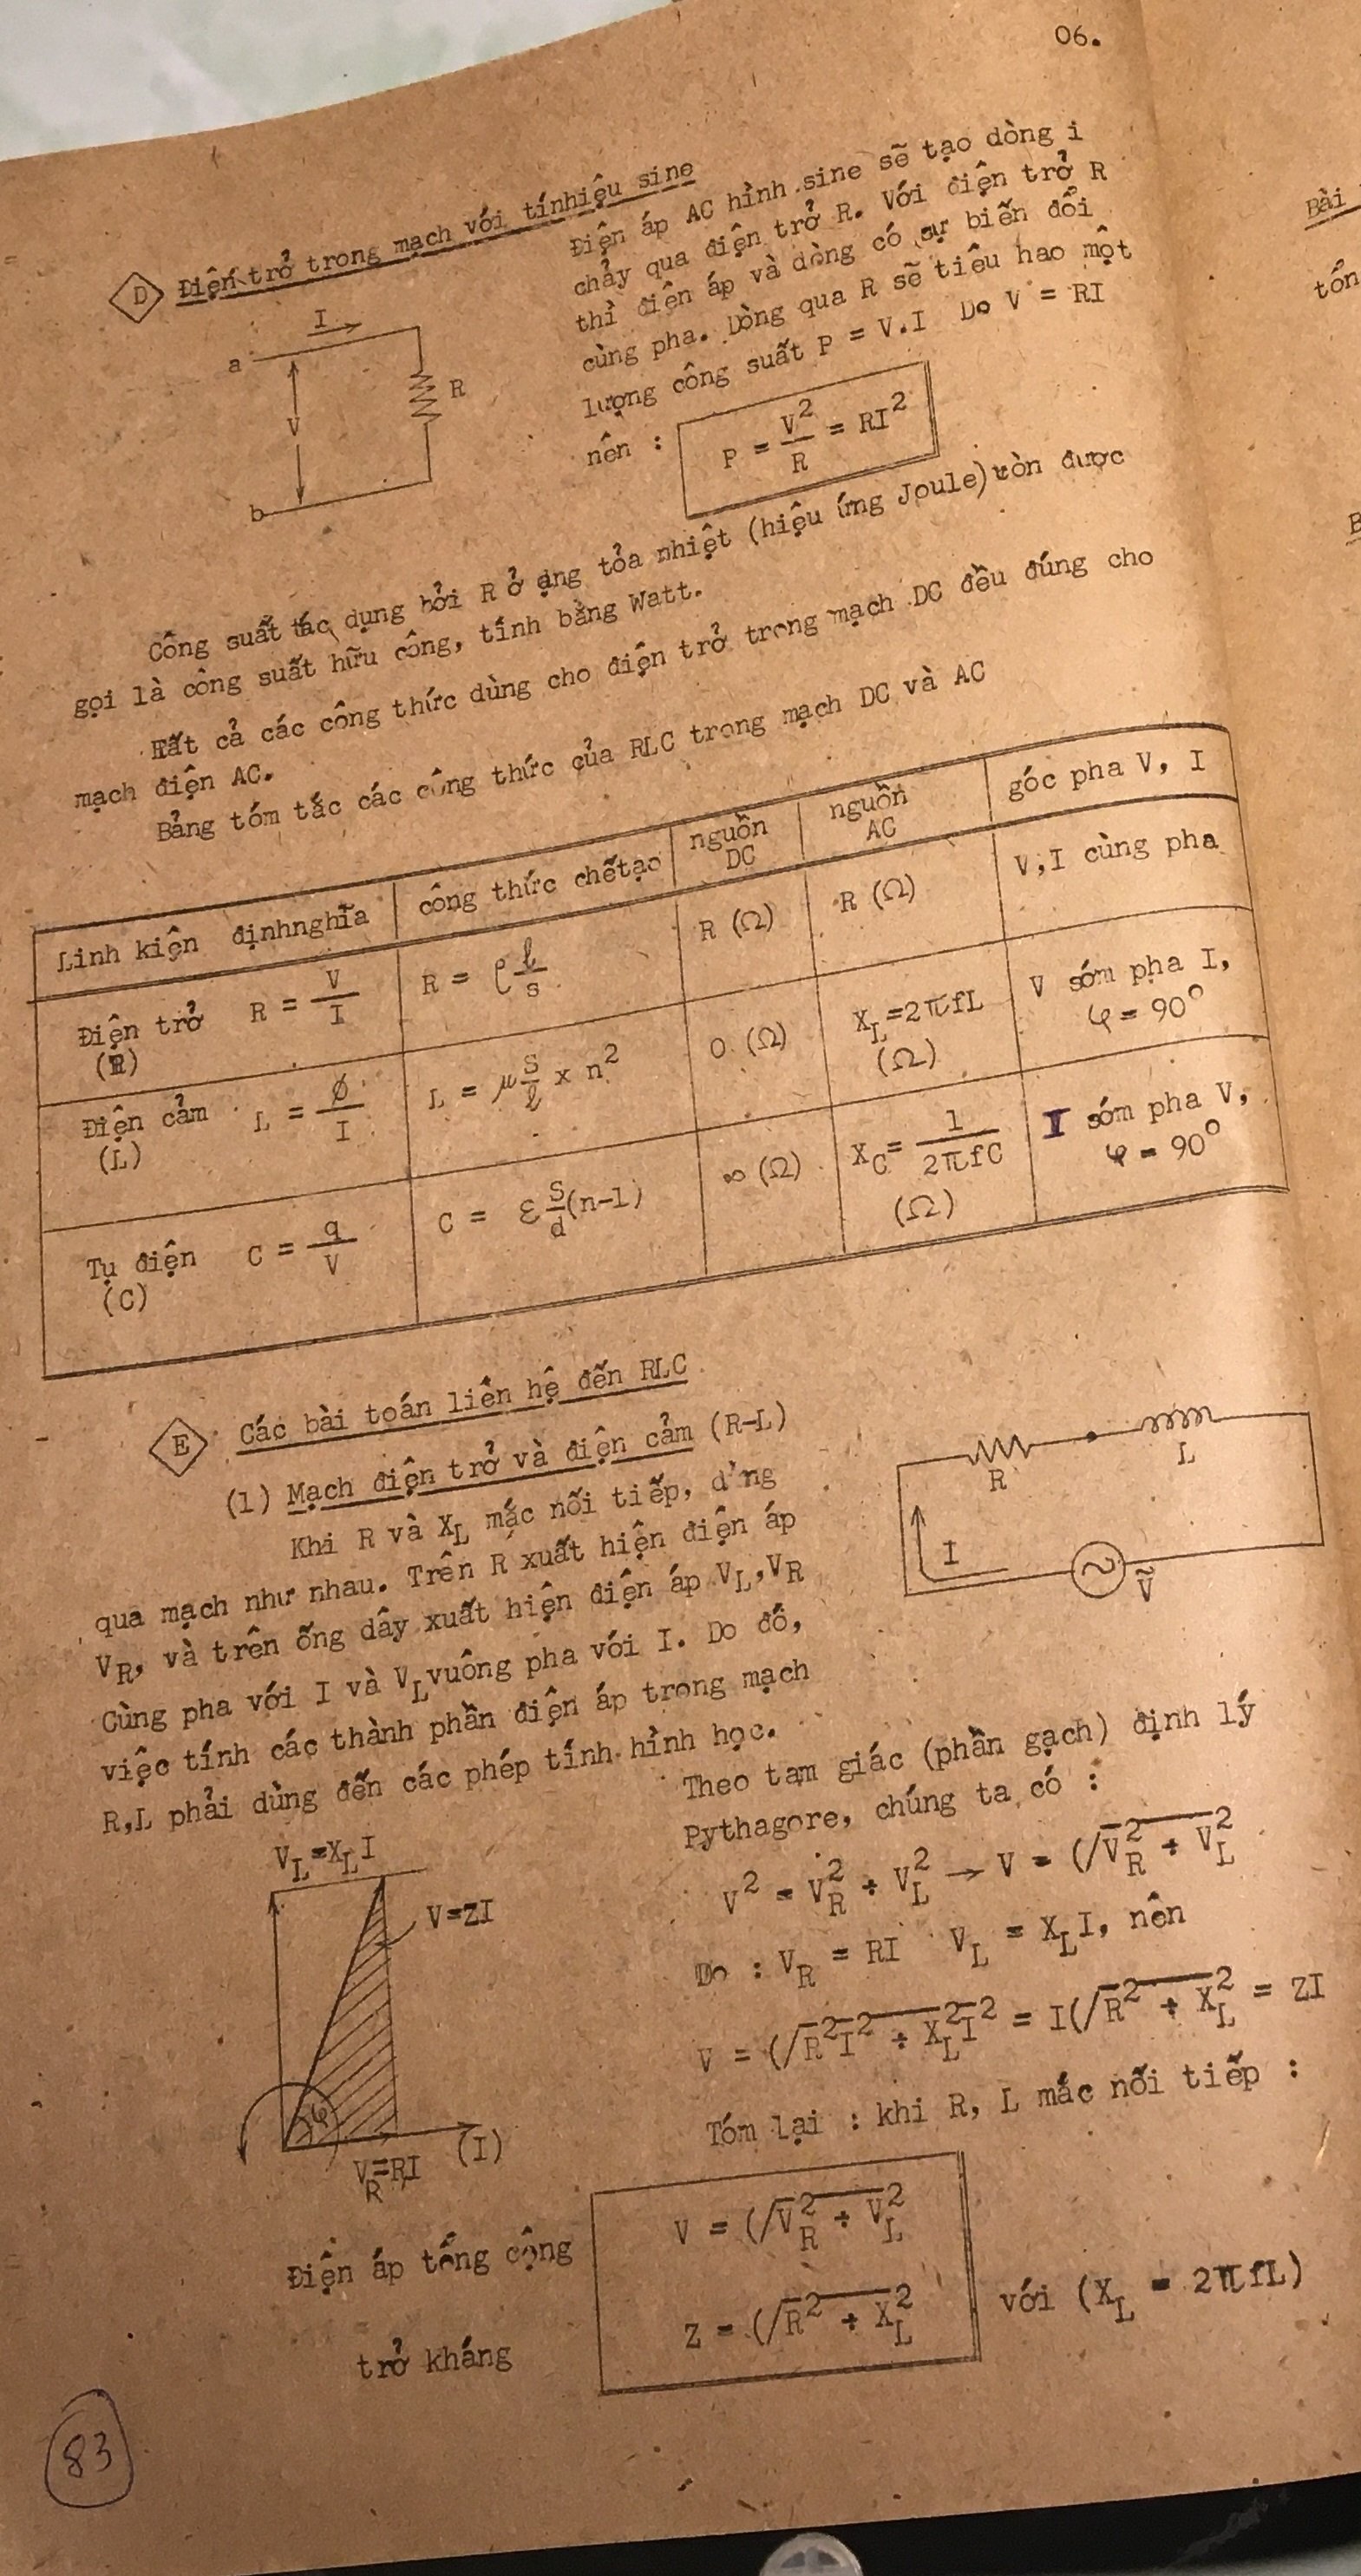 06.
D Điện trở trong mạch với tínhiệu sine
Điện áp AC hình sine sẽ tạo dòng i
chảy qua điện trở R. Với điện trở R
thì điện áp và dòng có sự biến đổi
cùng pha. Dòng qua R sẽ tiêu hao một
lượng công suất P = V.I Do V = RI
nên : P = V²/R = RI²
I
a
V
R
b
Công suất tác dụng bởi R ở dạng tỏa nhiệt (hiệu ứng Joule) còn được
gọi là công suất hữu công, tính bằng Watt.
Tất cả các công thức dùng cho điện trở trong mạch DC đều đúng cho
mạch điện AC.
Bảng tóm tắc các công thức của RLC trong mạch DC và AC
Linh kiện định nghĩa công thức chếtạo nguồn DC nguồn AC góc pha V, I
Điện trở (R) R = V/I R = ρ ℓ/s R (Ω) R (Ω) V,I cùng pha
Điện cảm (L) L = Ø/I L = μ S/ℓ x n² 0 (Ω) X_L=2πfL (Ω) V sớm pha I, φ = 90°
Tụ điện (C) C = q/V C = ε S/d (n-1) ∞ (Ω) X_C = 1/2πfC (Ω) I sớm pha V, φ = 90°
E Các bài toán liên hệ đến RLC
(1) Mạch điện trở và điện cảm (R-L)
Khi R và X_L mắc nối tiếp, dòng
qua mạch như nhau. Trên R xuất hiện điện áp
V_R, và trên ống dây xuất hiện điện áp V_L,V_R
Cùng pha với I và V_L vuông pha với I. Do đó,
việc tính các thành phần điện áp trong mạch
R,L phải dùng đến các phép tính hình học.
R
L
I
Ṽ
Theo tam giác (phần gạch) định lý
Pythagore, chúng ta có :
V² = V_R² + V_L² → V = √(V_R² + V_L²)
Do : V_R = RI V_L = X_L I, nên
V = √(R²I² + X_L²I²) = I√(R² + X_L²) = ZI
Tóm lại : khi R, L mắc nối tiếp :
V_L=X_L I
V=ZI
φ
V_R=RI
(I)
Điện áp tổng cộng V = √(V_R² + V_L²)
trở kháng Z = √(R² + X_L²) với (X_L = 2πfL)
83
Bài
tổn